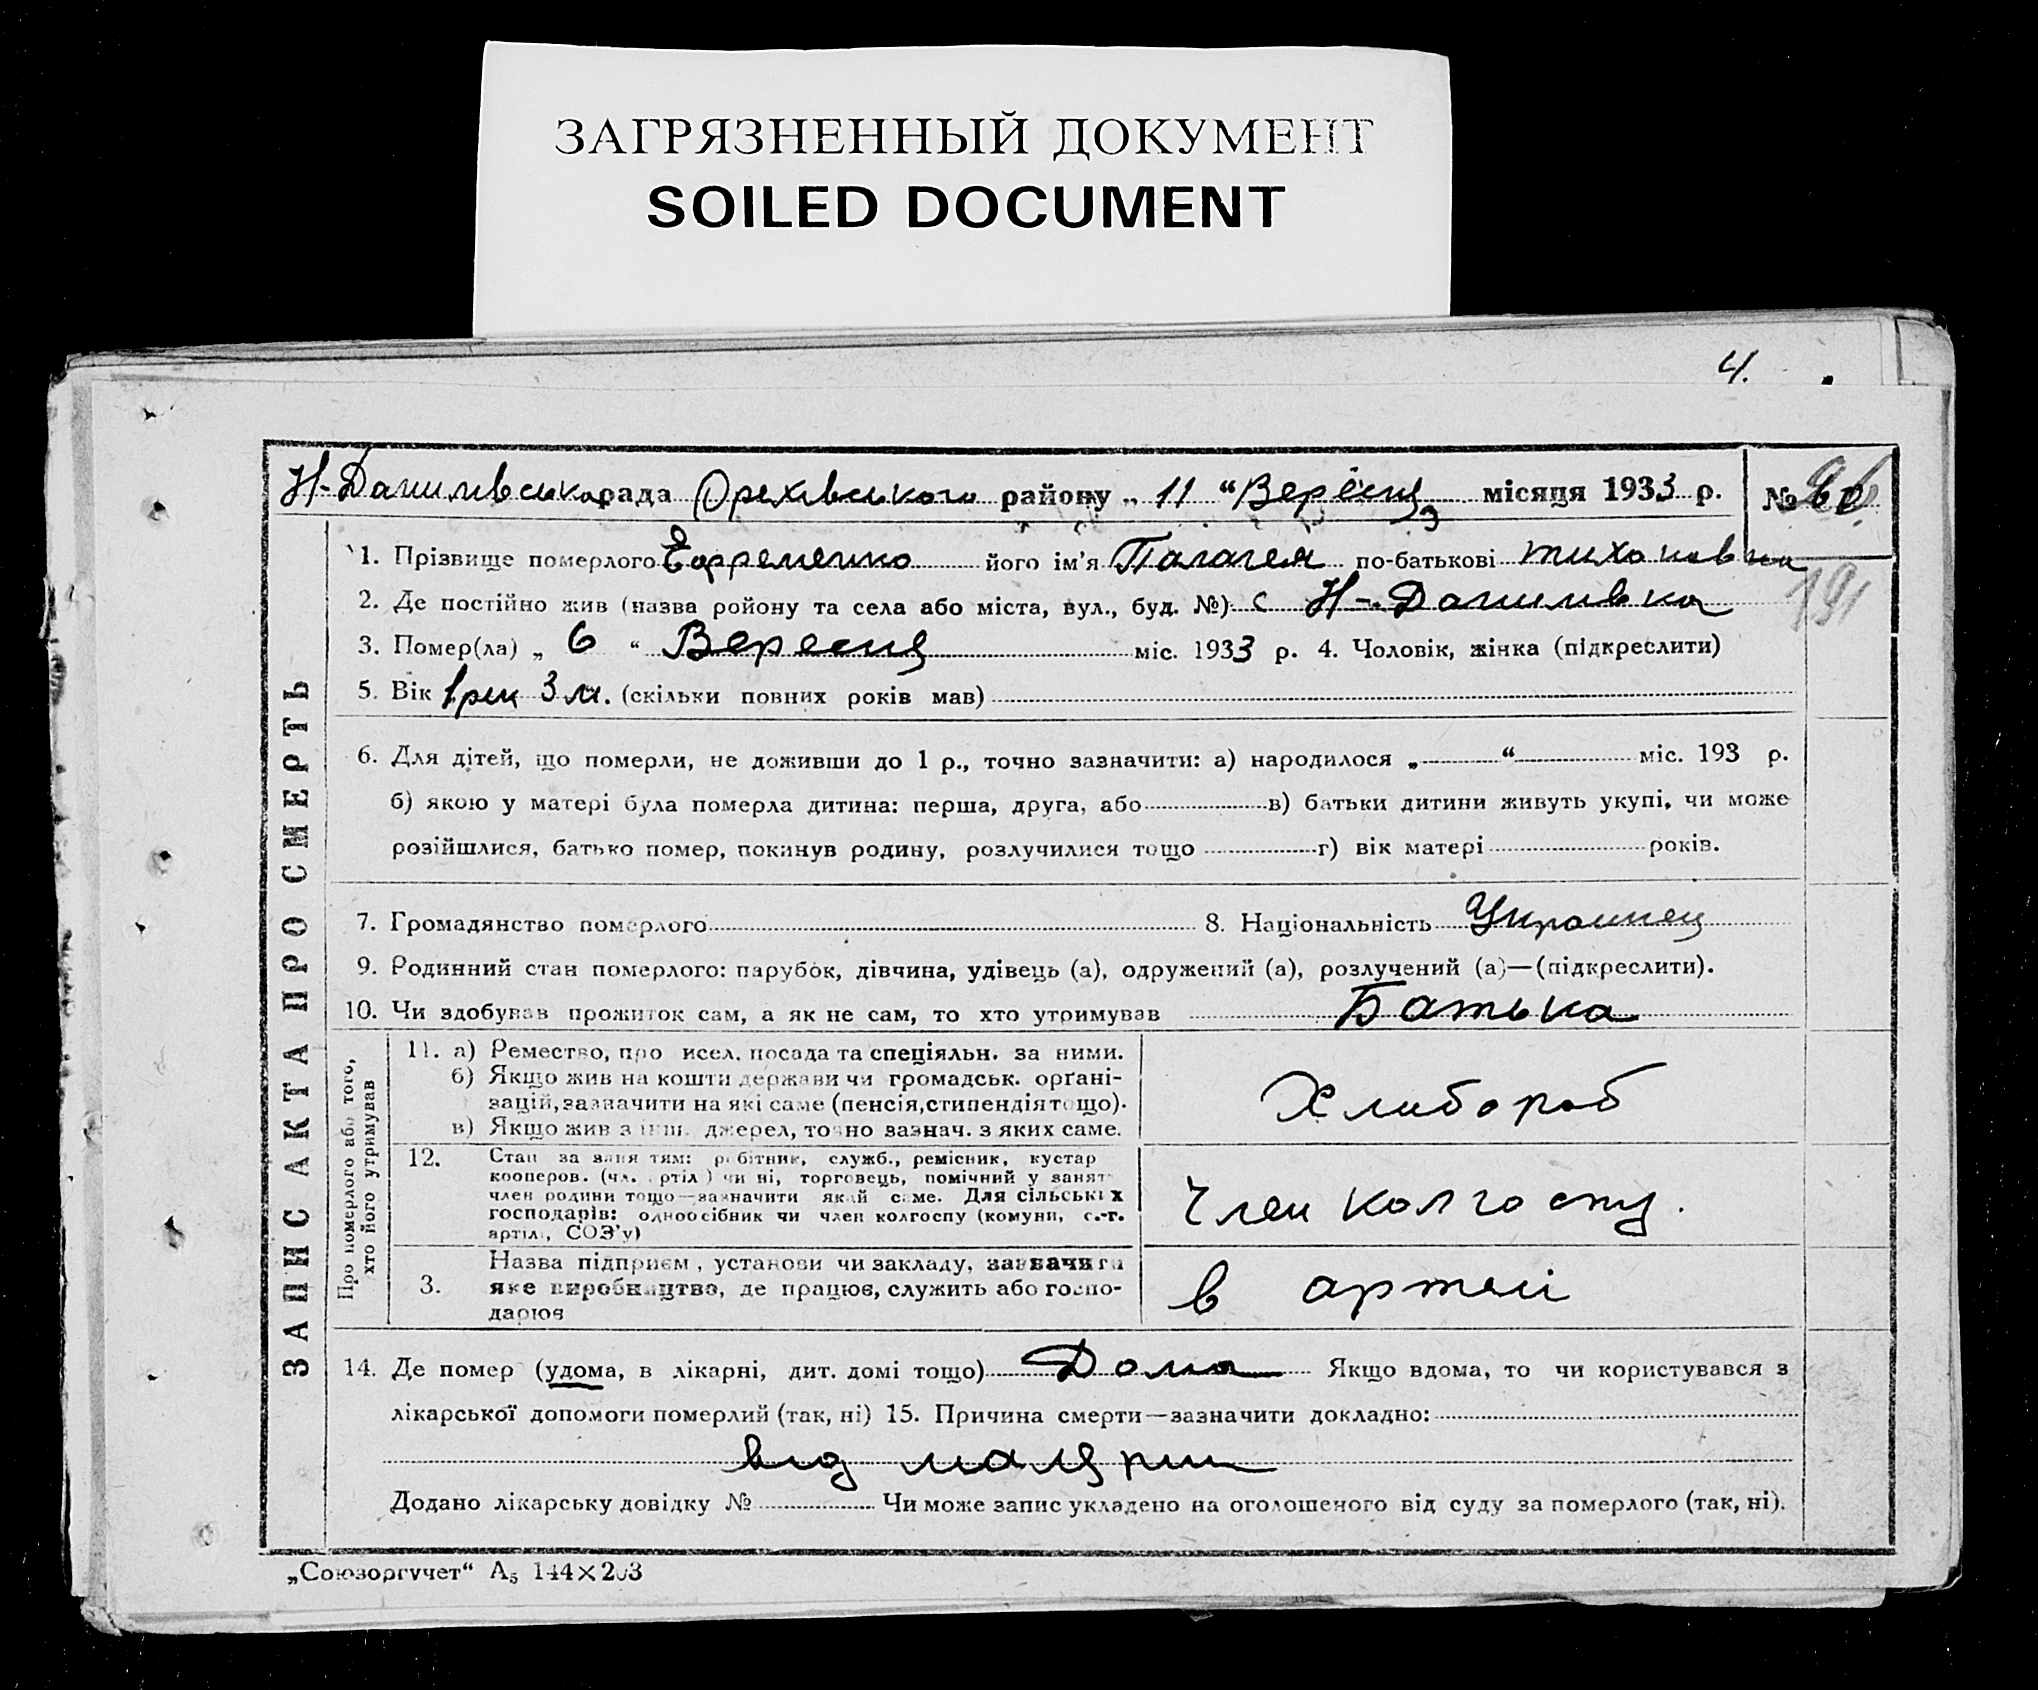 ЗАГРЯЗНЕННЫЙ ДОКУМЕНТ
SOILED DOCUMENT
4.
Н-Данилівська рада Оріхівського району „ 11 “ Вересня місяця 1933 р. №
191
1. Прізвище померлого Ефременко його ім'я Палагея по-батькові тихоновна
2. Де постійно жив (назва ройону та села або міста, вул., буд. №) с Н-Данилівка
3. Помер(ла) „ 6 “ Вересня міс. 1933 р. 4. Чоловік, жінка (підкреслити)
5. Вік 1 рік 3 м. (скільки повних років мав)
6. Для дітей, що померли, не доживши до 1 р., точно зазначити: а) народилося „ “ міс. 193 р.
б) якою у матері була померла дитина: перша, друга, або в) батьки дитини живуть укупі, чи може
розійшлися, батько помер, покинув родину, розлучилися тощо г) вік матері років.
7. Громадянство померлого 8. Національність Украинец
9. Родинний стан померлого: парубок, дівчина, удівець (а), одружений (а), розлучений (а)—(підкреслити).
10. Чи здобував прожиток сам, а як не сам, то хто утримував Батько
ЗАПИС АКТА ПРО СМЕРТЬ
Про померлого або того,
хто його утримував
11. а) Ремество, про исел. посада та спеціяльн. за ними.
б) Якщо жив на кошти держави чи громадськ. орґані-
зацій, зазначити на які саме (пенсія, стипендія тощо).
в) Якщо жив з інш. джерел, точно зазнач. з яких саме.
Хлибороб
12. Стан за заня тям: робітник, служб., ремісник, кустар
кооперов. (чл. ртіл ) чи ні, торговець, помічний у занят
член родини тощо—зазначити який саме. Для сільських
господарів: одноосібник чи член колгоспу (комуни, с.-г.
артілі, СОЗ'у)
Член колгоспу.
3. Назва підприєм , установи чи закладу, зазначити
яке виробництво, де працює, служить або госпо-
дарює
в артелі
14. Де помер (удома, в лікарні, дит. домі тощо) Дома Якщо вдома, то чи користувався з
лікарської допомоги померлий (так, ні) 15. Причина смерти—зазначити докладно:
від малярии
Додано лікарську довідку № Чи може запис укладено на оголошеного від суду за померлого (так, ні).
„Союзоргучет“ А5 144×203